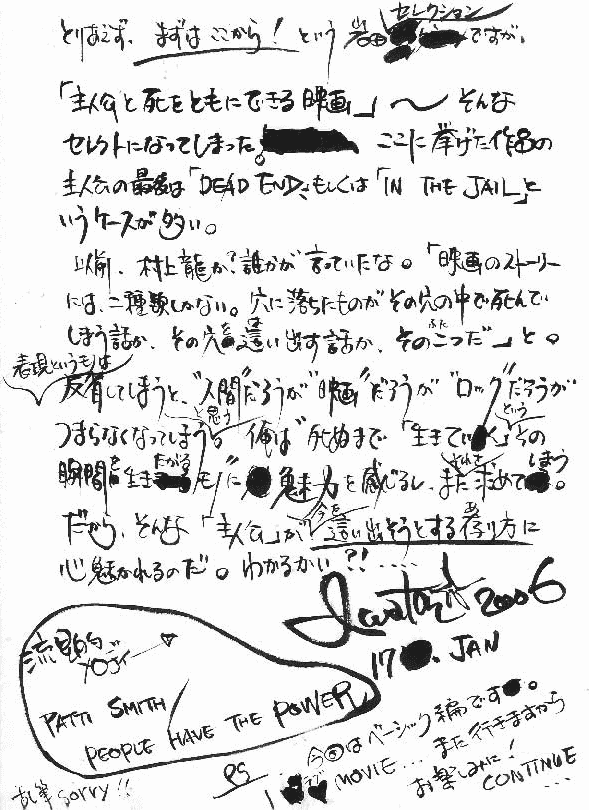 セレクション
とりあえず、まずはここから！という岩田ですが、
「主人公と死をともにできる映画」〜そんな
セレクトになってしまった。ここに挙げた作品の
主人公の最後は「DEAD END」もしくは「IN THE JAIL」と
いうケースが多い。
以前、村上龍か？誰かが言っていたな。「映画のストーリー
には、二種類しかない。穴に落ちたものがその穴の中で死んで
しまう話か、その穴を這い出す話か、そのふたつだ」と。
表現というものは
反省してしまうと、“人間”だろうが“映画”だろうが“ロック”だろうが
つまらなくなってしまうと思う。俺は“死ぬまで「生きていく」という
瞬間を生きたがるモノ”に魅力を感じるし、またそれを求めてしまう。
だから、そんな「主人公」が今を這い出そうとする在り方に
心魅かれるのだ。わかるかい?!……
2006
17. JAN
PATTI SMITH
PEOPLE HAVE THE POWER
PS
今回はベーシック編です。
MOVIE… また行きますから
お楽しみに！
CONTINUE…
乱筆 sorry!!